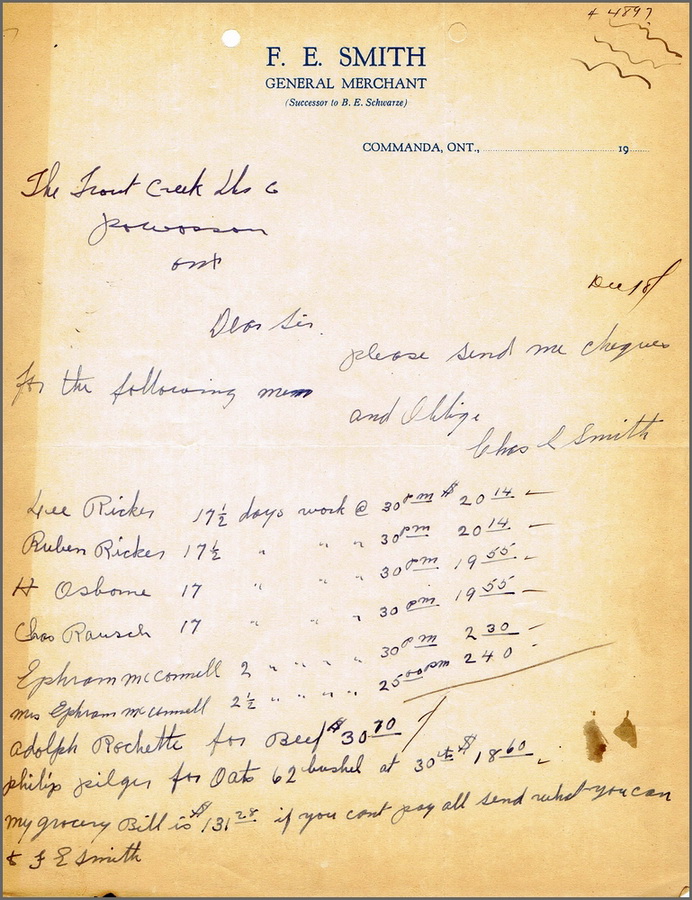 # 4897
F. E. SMITH
GENERAL MERCHANT
(Successor to B. E. Schwarze)
COMMANDA, ONT., 19
The Trout Creek Lbs Co
Powossan
ont
Dec 18
Dear Sir
please send me cheques
for the following men
and Oblige
Chas E Smith
Lee Ricker 17 1/2 days work @ 30 pm $ 20 14 –
Ruben Ricker 17 1/2 " " " 30 pm 20 14 –
H Osborne 17 " " " 30 pm 19 55 –
Chas Rausch 17 " " " 30 pm 19 55 –
Ephram mcconnell 2 " " " " 30 pm 2 30 –
mrs Ephram mcconnell 2 1/2 " " " " 25 00 pm 2 40
adolph Rochette for Beef $ 30 70
philip pilger for Oats 62 bushel at 30 ct $ 18 60 –
my grocery Bill is $ 131 28 if you cant pay all send what you can
F E Smith